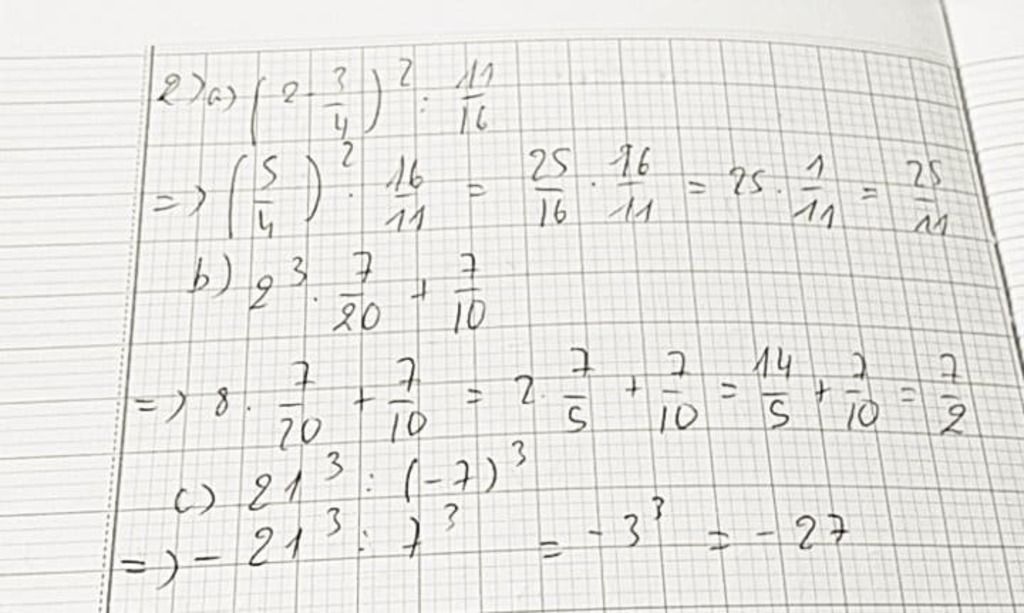 2) a) (2 - 3/4)² : 11/16
=> (5/4)² · 16/11 = 25/16 · 16/11 = 25 · 1/11 = 25/11
b) 2³ · 7/20 + 7/10
=> 8 · 7/20 + 7/10 = 2 · 7/5 + 7/10 = 14/5 + 7/10 = 7/2
c) 21³ : (-7)³
=> - 21³ : 7³ = -3³ = -27